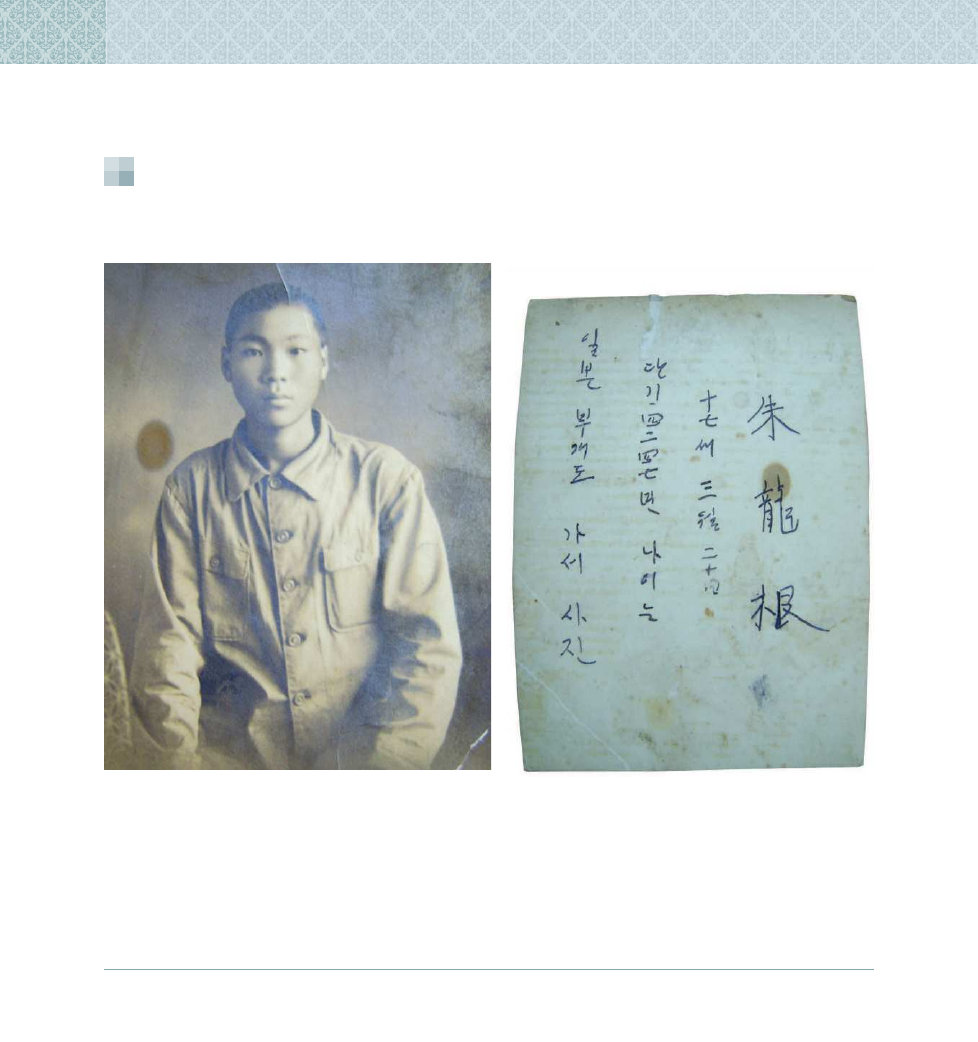 朱龍根
十七세 三월 二十日
단기 四二四七년 나이는
일본 부개도 가서 사진